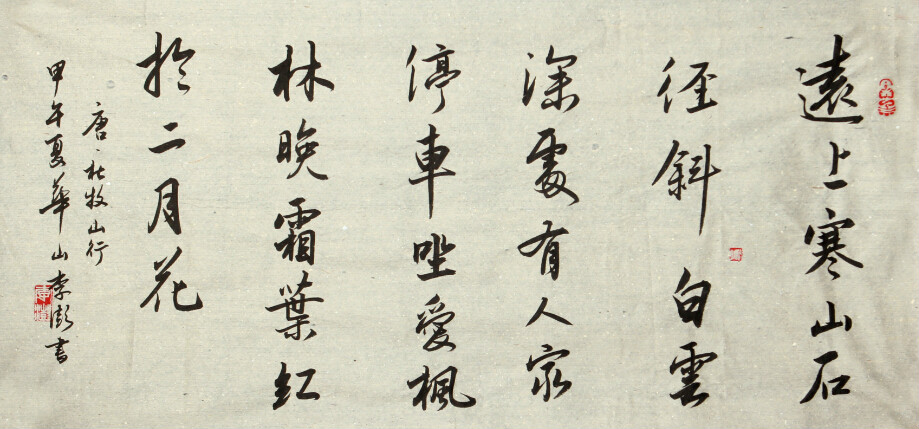 遠上寒山石
徑斜白雲
深處有人家
停車坐愛楓
林晚霜葉紅
於二月花
唐·杜牧山行
甲午夏華山李書